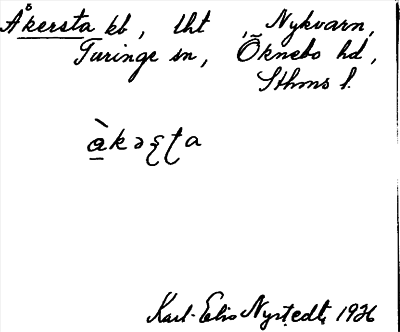 Åkersta kb, lht, Nykvarn,
Turinge sn, Öknebo hd,
Sthms l.
àkəʂʈa
Karl-Elis Nystedt, 1926